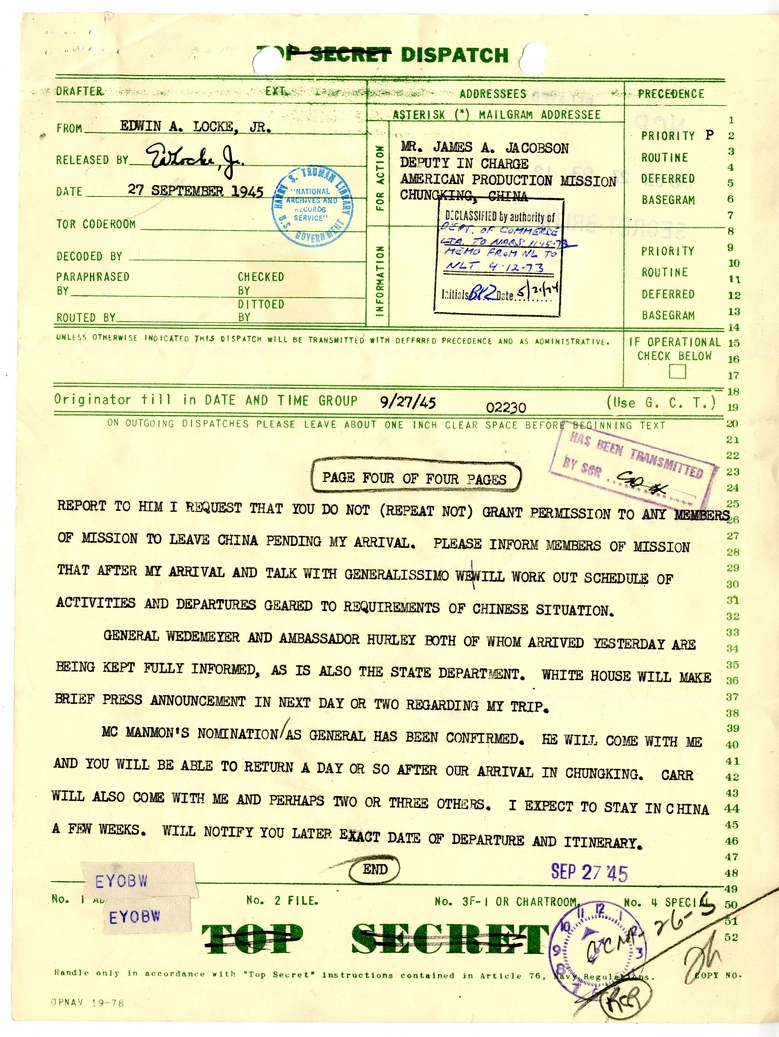 TOP SECRET DISPATCH
DRAFTER EXT. ADDRESSEES PRECEDENCE
ASTERISK (*) MAILGRAM ADDRESSEE
FROM EDWIN A. LOCKE, JR.
RELEASED BY EALocke, Jr.
DATE 27 SEPTEMBER 1945
TOR CODEROOM
DECODED BY
PARAPHRASED BY CHECKED BY
DITTOED
ROUTED BY BY
HARRY S. TRUMAN LIBRARY
"NATIONAL
ARCHIVES AND
RECORDS
SERVICE"
U.S. GOVERNMENT
FOR ACTION
MR. JAMES A. JACOBSON
DEPUTY IN CHARGE
AMERICAN PRODUCTION MISSION
CHUNGKING, CHINA
INFORMATION
DECLASSIFIED by authority of
DEPT. OF COMMERCE
LTR. TO NARS 11-15-73
MEMO FROM NL TO
NLT 4-12-73
Initials Date 5/21/74
PRIORITY P
ROUTINE
DEFERRED
BASEGRAM
PRIORITY
ROUTINE
DEFERRED
BASEGRAM
UNLESS OTHERWISE INDICATED THIS DISPATCH WILL BE TRANSMITTED WITH DEFERRED PRECEDENCE AND AS ADMINISTRATIVE.
IF OPERATIONAL
CHECK BELOW
Originator fill in DATE AND TIME GROUP 9/27/45 02230 (Use G. C. T.)
ON OUTGOING DISPATCHES PLEASE LEAVE ABOUT ONE INCH CLEAR SPACE BEFORE BEGINNING TEXT
HAS BEEN TRANSMITTED
BY SGR
PAGE FOUR OF FOUR PAGES
REPORT TO HIM I REQUEST THAT YOU DO NOT (REPEAT NOT) GRANT PERMISSION TO ANY MEMBERS
OF MISSION TO LEAVE CHINA PENDING MY ARRIVAL. PLEASE INFORM MEMBERS OF MISSION
THAT AFTER MY ARRIVAL AND TALK WITH GENERALISSIMO WE WILL WORK OUT SCHEDULE OF
ACTIVITIES AND DEPARTURES GEARED TO REQUIREMENTS OF CHINESE SITUATION.
GENERAL WEDEMEYER AND AMBASSADOR HURLEY BOTH OF WHOM ARRIVED YESTERDAY ARE
BEING KEPT FULLY INFORMED, AS IS ALSO THE STATE DEPARTMENT. WHITE HOUSE WILL MAKE
BRIEF PRESS ANNOUNCEMENT IN NEXT DAY OR TWO REGARDING MY TRIP.
MC MANMON'S NOMINATION AS GENERAL HAS BEEN CONFIRMED. HE WILL COME WITH ME
AND YOU WILL BE ABLE TO RETURN A DAY OR SO AFTER OUR ARRIVAL IN CHUNGKING. CARR
WILL ALSO COME WITH ME AND PERHAPS TWO OR THREE OTHERS. I EXPECT TO STAY IN CHINA
A FEW WEEKS. WILL NOTIFY YOU LATER EXACT DATE OF DEPARTURE AND ITINERARY.
END
SEP 27 '45
EYOBW
EYOBW
No. 1 AD No. 2 FILE. No. 3F-1 OR CHARTROOM. No. 4 SPECIAL
TOP SECRET
26-5
RCP
Handle only in accordance with "Top Secret" instructions contained in Article 76, Navy Regulations. COPY NO.
OPNAV 19-78
1
2
3
4
5
6
7
8
9
10
11
12
13
14
15
16
17
18
19
20
21
22
23
24
25
26
27
28
29
30
31
32
33
34
35
36
37
38
39
40
41
42
43
44
45
46
47
48
49
50
51
52